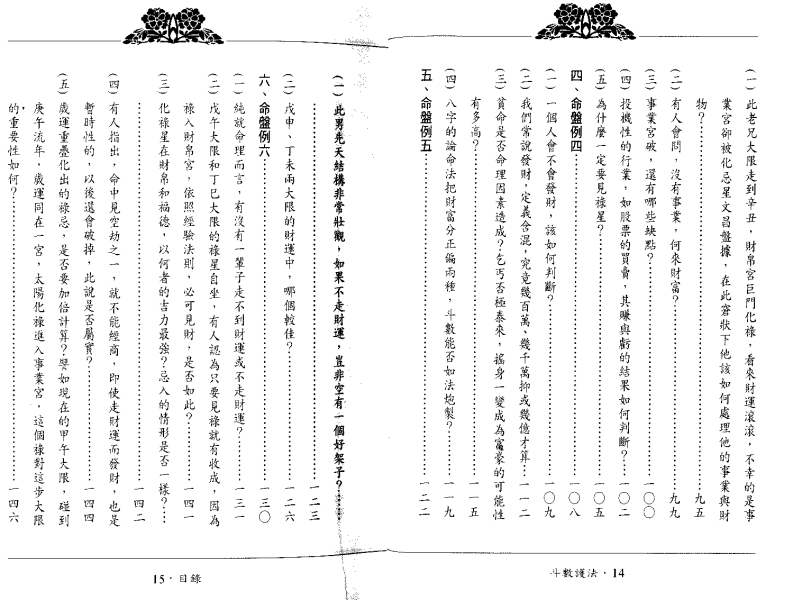 (一)此老兄大限走到辛丑，財帛宮巨門化祿，看來財運滾滾，不幸的是事
業宮卻被化忌星文昌盤據，在此窘狀下他該如何處理他的事業與財
物？⋯⋯⋯⋯⋯⋯九五
(二)有人會問，沒有事業，何來財富？⋯⋯⋯⋯⋯⋯九九
(三)事業宮破，還有哪些缺點？⋯⋯⋯⋯⋯⋯一〇〇
(四)投機性的行業，如股票的買賣，其賺與虧的結果如何判斷？⋯⋯一〇二
(五)為什麼一定要見祿星？⋯⋯⋯⋯⋯⋯一〇五
四、命盤例四⋯⋯⋯⋯⋯⋯一〇八
(一)一個人會不會發財，該如何判斷？⋯⋯⋯⋯⋯⋯一〇九
(二)我們常說發財，定義含混，究竟幾百萬、幾千萬抑或幾億才算⋯⋯一一二
(三)貧命是否命理因素造成？乞丐否極泰來，搖身一變成為富豪的可能性
有多高？⋯⋯⋯⋯⋯⋯一一五
(四)八字的論命法把財富分正偏兩種，斗數能否如法炮製？⋯⋯一一九
五、命盤例五⋯⋯⋯⋯⋯⋯一二二
斗數護法・14
(一)此男先天結構非常壯觀，如果不走財運，豈非空有一個好架子？⋯⋯
⋯⋯⋯⋯⋯⋯一二三
(二)戊申、丁未兩大限的財運中，哪個較佳？⋯⋯⋯⋯⋯⋯一二六
六、命盤例六⋯⋯⋯⋯⋯⋯一三〇
(一)純就命理而言，有沒有一輩子走不到財運或不走財運？⋯⋯一三一
(二)戊午大限和丁巳大限的祿星自坐，有人認為只要見祿就有收成，因為
祿入財帛宮，依照經驗法則，必可見財，是否如此？⋯⋯一四一
(三)化祿星在財帛和福德，以何者的吉力最強？忌入的情形是否一樣？⋯⋯
⋯⋯⋯⋯⋯⋯一四二
(四)有人指出，命中見空劫之一，就不能經商，即使走財運而發財，也是
暫時性的，以後還會破掉，此說是否屬實？⋯⋯⋯⋯⋯⋯一四四
(五)歲運重疊化出的祿忌，是否要加倍計算？譬如現在的甲午大限，碰到
庚午流年，歲運同在一宮，太陽化祿進入事業宮，這個祿對這步大限
的重要性如何？⋯⋯⋯⋯⋯⋯一四六
15・目錄